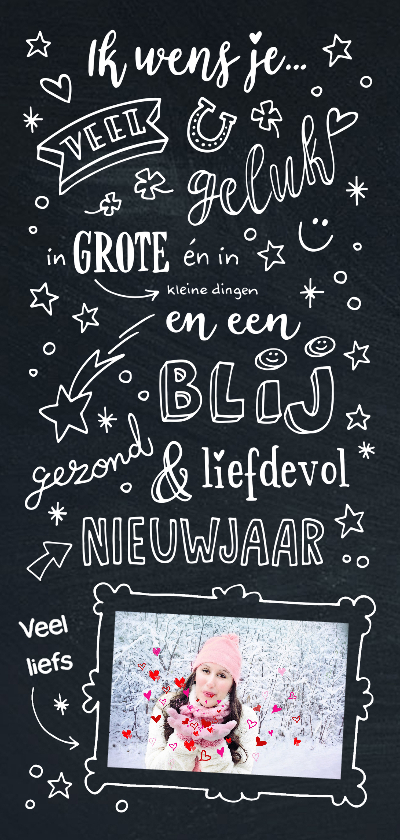 Ik wens je...
VEEL
geluk
in GROTE én in
kleine dingen
en een
BLIJ
gezond
& liefdevol
NIEUWJAAR
Veel
liefs